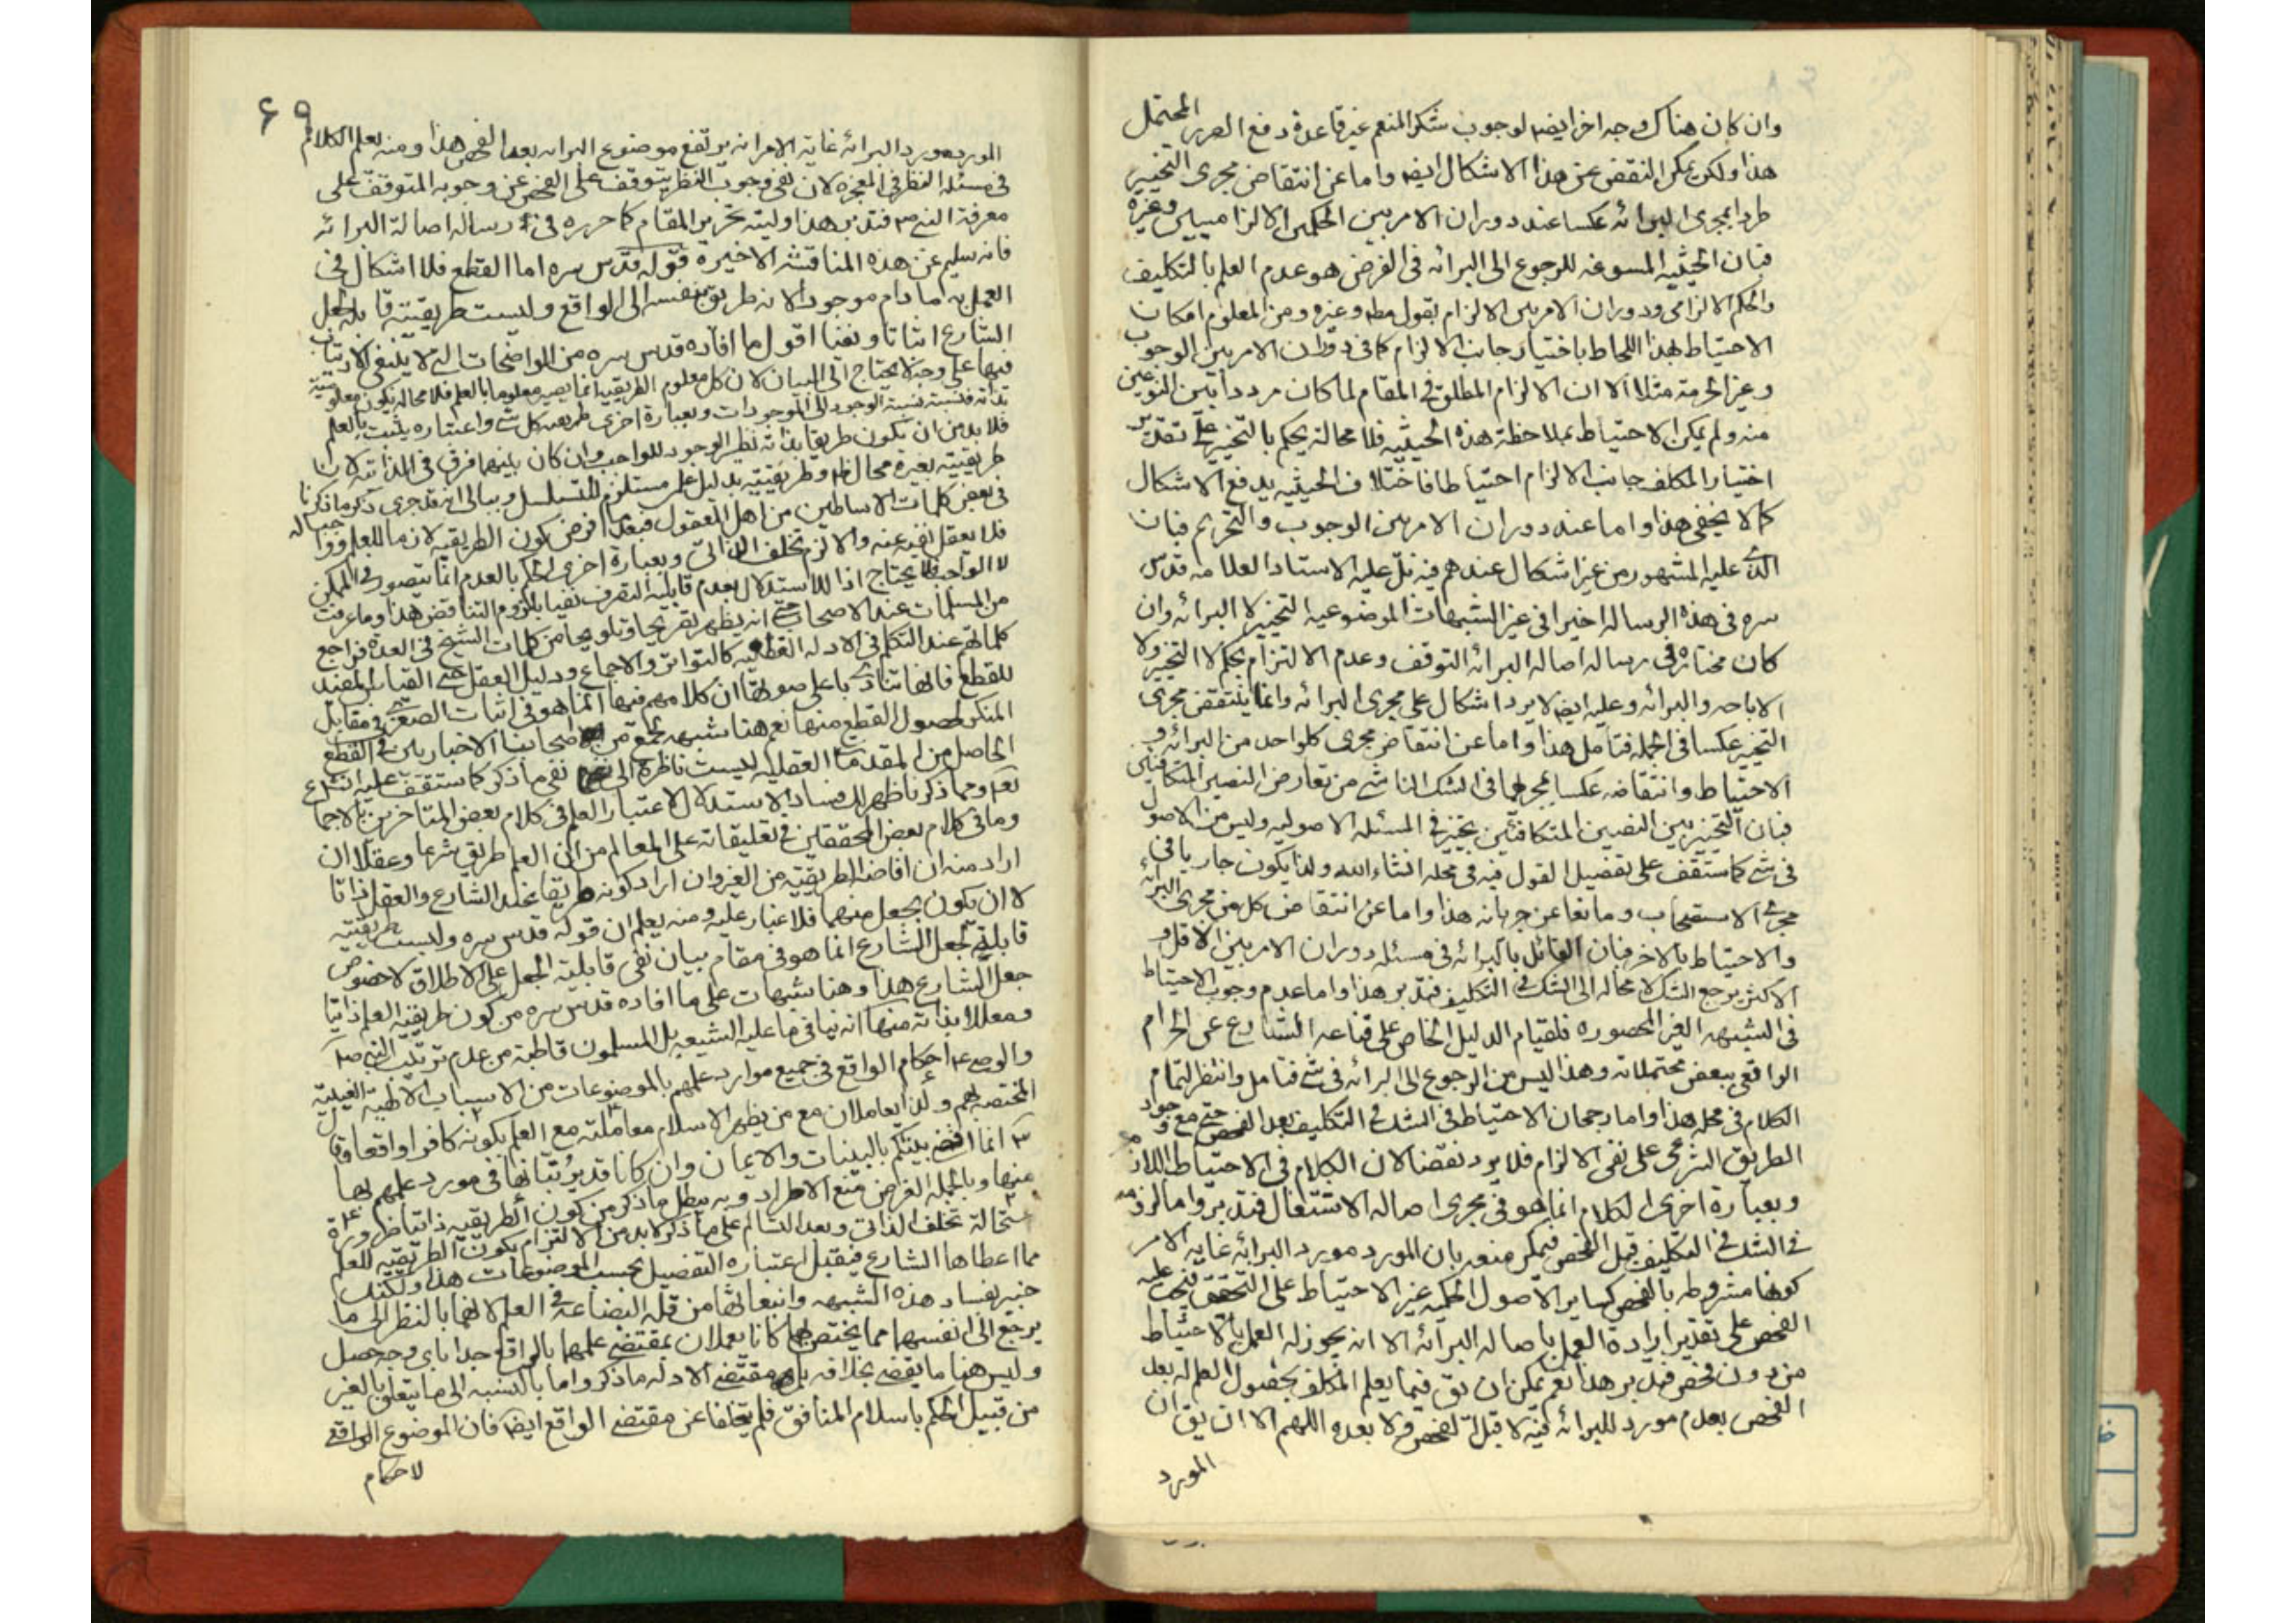 وان كان هناك وجه اخر ايضا لوجوب شكر المنعم غير قاعدة دفع الضرر المحتمل
هذا ولكن يمكن النقض عن هذا الاشكال ايضا واما عن انتقاض مجرى التخيير
طردا بمجرى البرائه عكسا عند دوران الامر بين الحكمين الالزاميين وغيره
فبان الحيثيه المسوغه للرجوع الى البرائه فى الفرض هو عدم العلم بالتكليف
والحكم الالزامى ودوران الامر بين الالزام بقول مطلق وغيره ومن المعلوم امكان
الاحتياط بهذا اللحاظ باختيار جانب الالزام كما فى دوران الامر بين الوجوب
وغير الحرمة مثلا الا ان الالزام المطلق فى المقام لما كان مرددا بين النوعين
منه ولم يمكن الاحتياط بملاحظة هذه الحيثيه فلا محالة يحكم بالتخيير على تقدير
اختيار المكلف جانب الالزام احتياطا فاختلاف الحيثيه يدفع الاشكال
كما لا يخفى هذا واما عند دوران الامر بين الوجوب والتحريم فبان
الذى عليه المشهور من غير اشكال عندهم فيه بل عليه الاستاد العلامه قدس
سره فى هذه الرساله اخيرا فى غير الشبهات الموضوعيه التخيير لا البرائه وان
كان مختاره فى رساله اصاله البرائه التوقف وعدم الالتزام بحكم لا التخيير ولا
الاباحه والبرائه وعليه ايضا لا يرد اشكال على مجرى البرائه وانما ينتقض مجرى
التخيير عكسا فى الجمله فتامل هذا واما عن انتقاض مجرى كلواحد من البرائه و
الاحتياط وانتقاضه عكسا بمجراهما فى الشك الناشى من تعارض النصين المتكافئين
فبان التخيير بين النصين المتكافئين تخيير فى المسئله الاصوليه وليس من الاصول
فى شى كما ستقف على تفصيل القول فيه فى محله انشاء الله ولذا يكون جاريا فى
مجرى الاستصحاب ومانعا عن جريانه هذا واما عن انتقاض كل من مجرى البرائه
والاحتياط بالاخر فبان القائل بالبرائه فى مسئله دوران الامر بين الاقل و
الاكثر يرجع الشك لا محاله الى الشك فى التكليف فتدبر هذا واما عدم وجوب الاحتياط
فى الشبهه الغير المحصوره فلقيام الدليل الخاص على قناعه الشارع عن الحرام
الواقعى ببعض محتملاته وهذا ليس من الرجوع الى البرائه فى شى فتامل وانتظر لتمام
الكلام فى محله هذا واما رجحان الاحتياط فى الشك فى التكليف بعد الفحص حتى مع وجود
الطريق الشرعى على نفى الالزام فلا يرد نقضا لان الكلام فى الاحتياط اللازم
وبعبارة اخرى الكلام انما هو فى مجرى اصاله الاشتغال فتدبر واما لزومه
فى الشك فى التكليف قبل الفحص فيمكن منعه بان المورد مورد البرائه غايه الامر
كونها مشروطه بالفحص كساير الاصول الحكميه غير الاحتياط على التحقيق فيجب عليه
الفحص على تقدير ارادة العمل باصاله البرائه الا انه يجوز له العمل بالاحتياط
من دون فحص فتدبر هذا نعم يمكن ان يق فيما يعلم المكلف بحصول العلم له بعد
الفحص بعدم مورد للبرائه فيه لا قبل الفحص ولا بعده اللهم الا ان يق ان
المورد
٦٩
المورد مورد البرائه غاية الامر انه يرتفع موضوع البرائه بعد الفحص هذا ومنه يعلم الكلام
فى مسئله النظر فى المعجزه لان نفى وجوب النظر يتوقف على الفحص عن وجوبه المتوقف على
معرفة النبى ص فتدبر هذا وليته حرر المقام كما حرره فى رساله اصالة البرائه
فانه سليم عن هذه المناقشه الاخيرة قوله قدس سره اما القطع فلا اشكال فى
العمل به ما دام موجودا لانه طريق بنفسه الى الواقع وليست طريقيته قابله لجعل
الشارع اثباتا ونفيا اقول ما افاده قدس سره من الواضحات التى لا ينبغى الارتياب
فيها على وجه لا يحتاج الى البيان لان كل معلوم الطريقيه انما يصير معلوما بالعلم فلا محاله يكون معلوميته
بذاته فنسبته نسبة الوجود الى الموجودات وبعبارة اخرى طريقيه كل شى واعتباره يثبت بالعلم
فلا بد من ان يكون طريقا بذاته نظير الوجود للواجب وان كان بينهما فرق فى الذاتيه لان
طريقيته بغيره محال وطريقيته بدليل علمى مستلزم للتسلسل وببالى انه قد جرى ذكر ما ذكرنا
فى بعض كلمات الاساطين من اهل المعقول فبعد فرض كون الطريقيه لازما للعلم ووا جبا له
فلا يعقل نفيه عنه والا لزم تخلف الذاتى وبعبارة اخرى الحكم بالعدم انما يتصور فى الممكن
لا الواجب فلا يحتاج اذا للاستدلال بعدم قابليه التصرف نفيا بلزوم التناقض هذا وما عرفت
من المسلمات عند الاصحاب حتى انه يظهر تصريحا وتلويحا من كلمات الشيخ فى العدة فراجع
كلماتهم عند التكلم فى الادله القطعيه كالتواتر والاجماع ودليل العقل حتى القياس المفيد
للقطع فانها تنادى باعلى صوتها ان كلامهم فيها انما هو فى اثبات الصغرى فى مقابل
المنكر لحصول القطع منها نعم هنا شبهه لجمع من اصحابنا الاخباريين فى القطع
الحاصل من المقدمات العقليه ليست ناظرة الى نفى ما ذكر كما ستقف عليه انشاء
تعالى ومما ذكرنا ظهر لك فساد الاستدلال لاعتبار العلم فى كلام بعض المتاخرين بالاجماع
وما فى كلام بعض المحققين فى تعليقاته على المعالم من ان العلم طريق شرعا وعقلا ان
اراد منه ان افاضه الطريقيه من الغير وان اراد كونه طريقا عند الشارع والعقل ذاتا
لا ان يكون بجعل منهما فلا غبار عليه ومنه يعلم ان قوله قدس سره وليست طريقيته
قابلة لجعل الشارع انما هو فى مقام بيان نفى قابلية الجعل على الاطلاق لا خصوص
جعل الشارع هذا وهنا شبهات على ما افاده قدس سره من كون طريقيه العلم ذاتيا
ومعللا بذاته منها انه ينافى ما عليه الشيعه بل المسلمون قاطبة من عدم ترتيب النبى ص
والوصى ع احكام الواقع فى جميع موارد علمهم بالموضوعات من الاسباب الالهيه الغيبية
المختصه بهم ولذا يعاملان مع من يظهر الاسلام معاملته مع العلم بكونه كافرا واقعا وقال
ص انما اقضى بينكم بالبينات والايمان وان كانا قد يرتبانها فى مورد علمهم بها
منها وبالجمله الغرض منع الاطراد وبه يبطل ما ذكر من كون الطريقيه ذاتيا ضرورة
استحالة تخلف الذاتى وبعد التسالم على ما ذكر لا بد من الالتزام بكون الطريقيه للعلم
مما اعطاها الشارع فيقبل اعتباره التفصيل بحسب الموضوعات هذا ولكنك
خبير بفساد هذه الشبهه وانبعاثها من قلة البضاعة فى العلم لانهما بالنظر الى ما
يرجع الى انفسهما مما يختص بهما كانا يعملان بمقتضى علمهما بالواقع جدا باى وجه حصل
وليس هنا ما يقضى بخلافه بل مقتضى الادله ما ذكر واما بالنسبه الى ما يتعلق بالغير
من قبيل الحكم باسلام المنافق فلم يتخلفا عن مقتضى الواقع ايضا فان الموضوع الواقعى
لاحكام